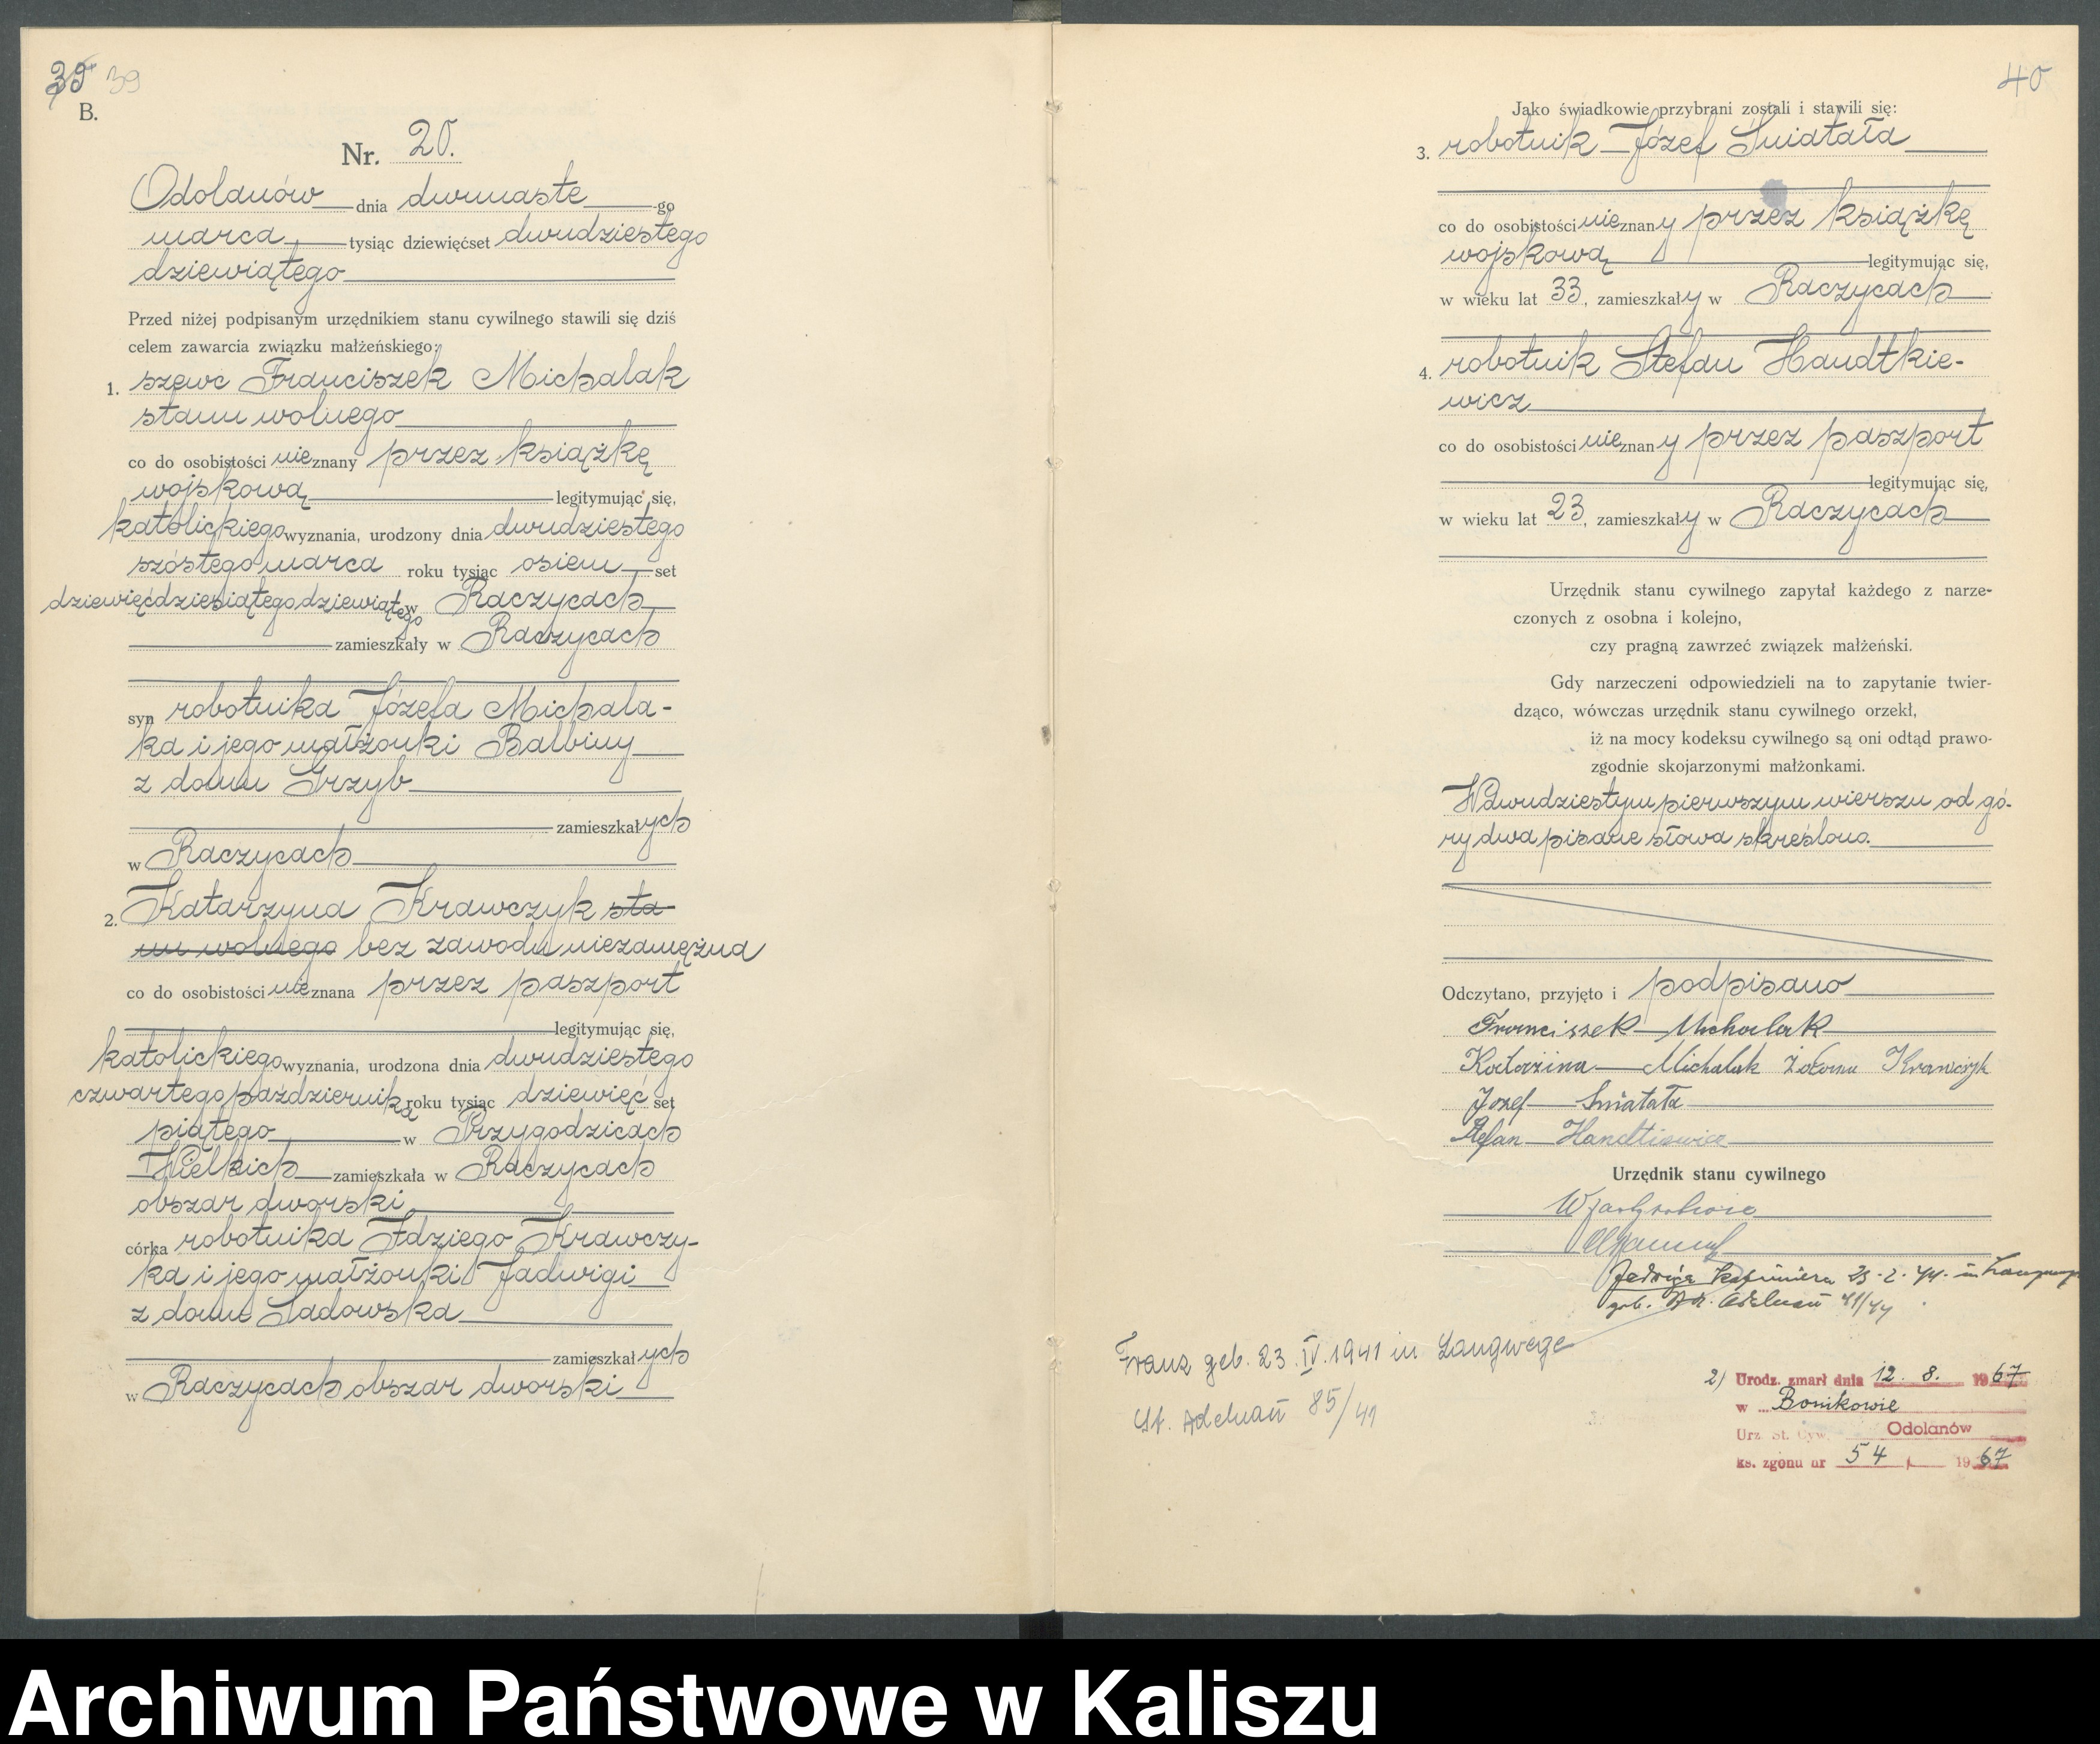 39 39
B.
Nr. 20.
Odolanów dnia dwunaste go
marca tysiąc dziewięćset dwudziestego
dziewiątego
Przed niżej podpisanym urzędnikiem stanu cywilnego stawili się dziś
celem zawarcia związku małżeńskiego:
1. szewc Franciszek Michalak
stanu wolnego
co do osobistości nieznany przez książkę
wojskową legitymując się,
katolickiego wyznania, urodzony dnia dwudziestego
szóstego marca roku tysiąc osiem set
dziewięćdziesiątego dziewiątego w Raczycach
zamieszkały w Raczycach
syn robotnika Józefa Michala-
ka i jego małżonki Balbiny
z domu Grzyb
zamieszkałych
w Raczycach
2. Katarzyna Krawczyk sta-
nu wolnego bez zawodu niezamężna
co do osobistości nieznana przez paszport
legitymując się,
katolickiego wyznania, urodzona dnia dwudziestego
czwartego października roku tysiąc dziewięć set
piątego w Przygodzicach
Wielkich zamieszkała w Raczycach
obszar dworski
córka robotnika Idziego Krawczy-
ka i jego małżonki Jadwigi
z domu Sadowska
zamieszkałych
w Raczycach obszar dworski
40
Jako świadkowie przybrani zostali i stawili się:
3. robotnik Józef Śniatała
co do osobistości nieznany przez książkę
wojskową legitymując się,
w wieku lat 33, zamieszkały w Raczycach
4. robotnik Stefan Handtkie-
wicz
co do osobistości nieznany przez paszport
legitymując się,
w wieku lat 23, zamieszkały w Raczycach
Urzędnik stanu cywilnego zapytał każdego z narze-
czonych z osobna i kolejno,
czy pragną zawrzeć związek małżeński.
Gdy narzeczeni odpowiedzieli na to zapytanie twier-
dząco, wówczas urzędnik stanu cywilnego orzekł,
iż na mocy kodeksu cywilnego są oni odtąd prawo-
zgodnie skojarzonymi małżonkami.
W dwudziestym pierwszym wierszu od gó-
ry dwa pisane słowa skreślono.
Odczytano, przyjęto i podpisano
Franciszek Michalak
Katarzina Michalak Krawczyk
Jozef Śniatała
Stefan Handtkiewicz
Urzędnik stanu cywilnego
W zastępstwie
Jadwiga Kazimiera 23. 2. 44. in
geb. Adelnau 41/44
Franz geb. 23. IV. 1941 in Langwege
St. A. Adelnau 85/41
2) Urodz. zmarł dnia 12. 8. 1967
w Bonikowie
Urz. St. Cyw. Odolanów
ks. zgonu nr 54 / 1967
Archiwum Państwowe w Kaliszu